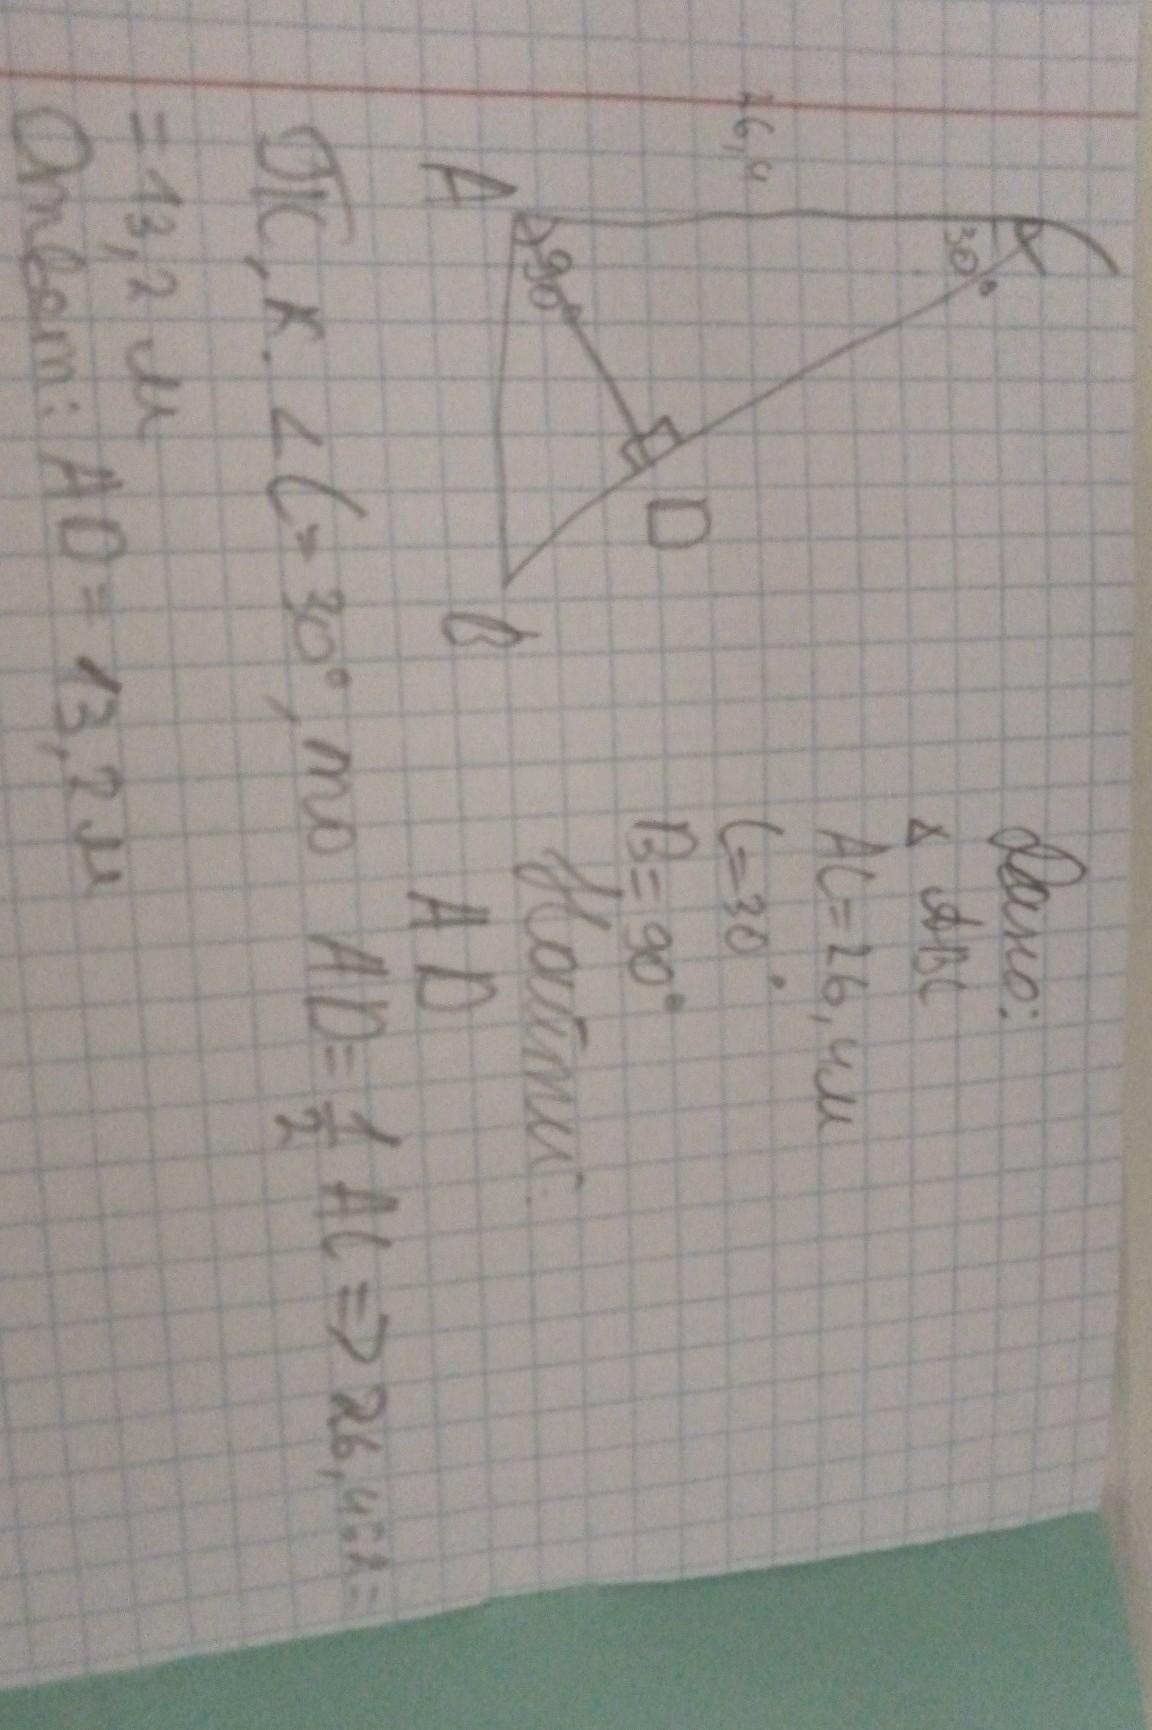 C
30°
26,4
90°
D
A
B
Дано:
△ ABC
AC = 26,4м
C = 30°
B = 90°
Найти:
AD
Т.К, к. ∠C = 30°, то AD = 1/2 AC => 26,4:2 =
= 13,2 м
Ответ: AD = 13,2 м